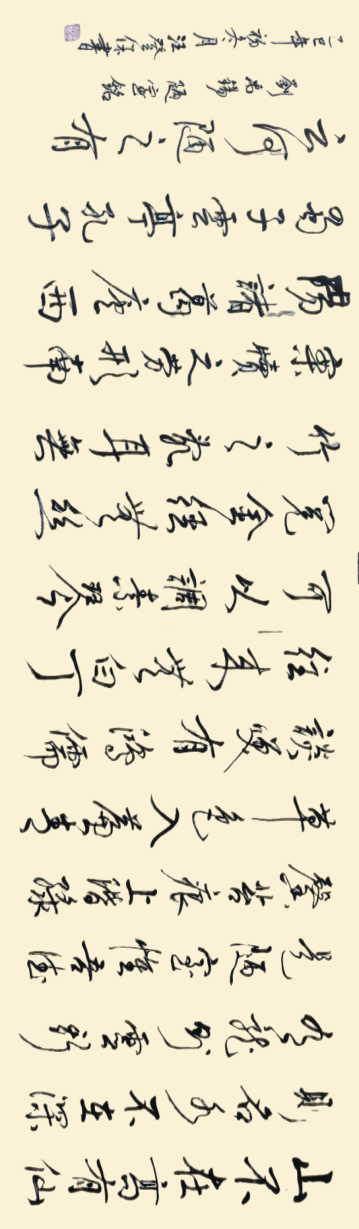 山不在高有仙
則名水不在深
有龍則靈斯
是陋室惟吾德
馨苔痕上階綠
草色入簾青
談笑有鴻儒
往來無白丁
可以調素琴
閱金經無丝
竹之亂耳無
案牘之勞形南
陽諸葛廬西
蜀子雲亭孔子
云何陋之有
劉禹錫陋室銘
乙巳年初冬月汪保書